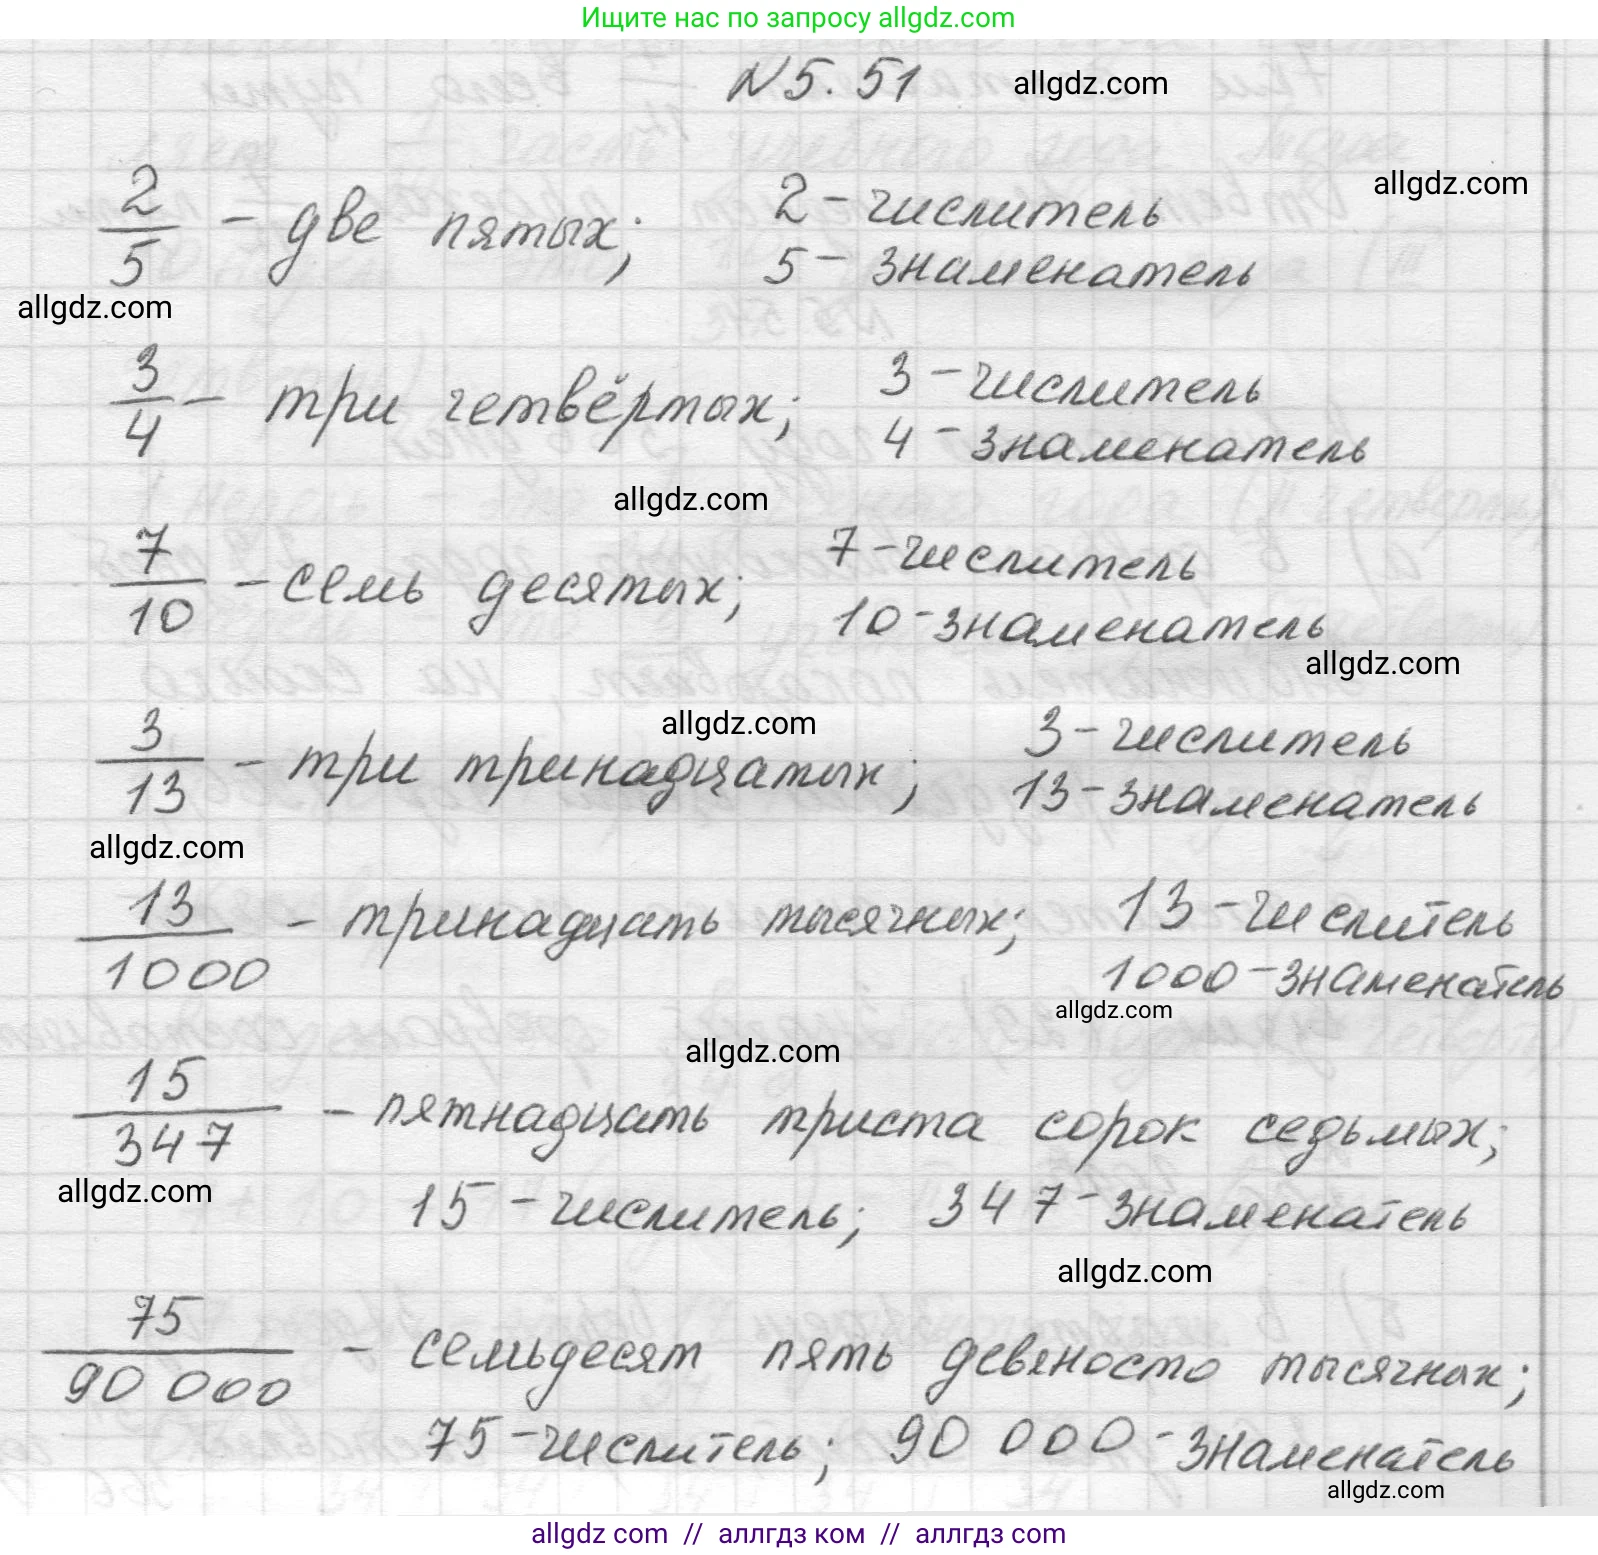 Ищите нас по запросу allgdz.com
№5.51 allgdz.com
allgdz.com
2/5 - две пятых; 2 - числитель
5 - знаменатель
allgdz.com
3/4 - три четвёртых; 3 - числитель
4 - знаменатель
allgdz.com
7/10 - семь десятых; 7 - числитель
10 - знаменатель
allgdz.com
allgdz.com
3/13 - три тринадцатых; 3 - числитель
13 - знаменатель
allgdz.com
13/1000 - тринадцать тысячных; 13 - числитель
1000 - знаменатель
allgdz.com
allgdz.com
15/347 - пятнадцать триста сорок седьмых;
allgdz.com
15 - числитель; 347 - знаменатель
allgdz.com
75/90 000 - семьдесят пять девяносто тысячных;
75 - числитель; 90 000 - знаменатель
allgdz.com
allgdz com // аллгдз ком // аллгдз com